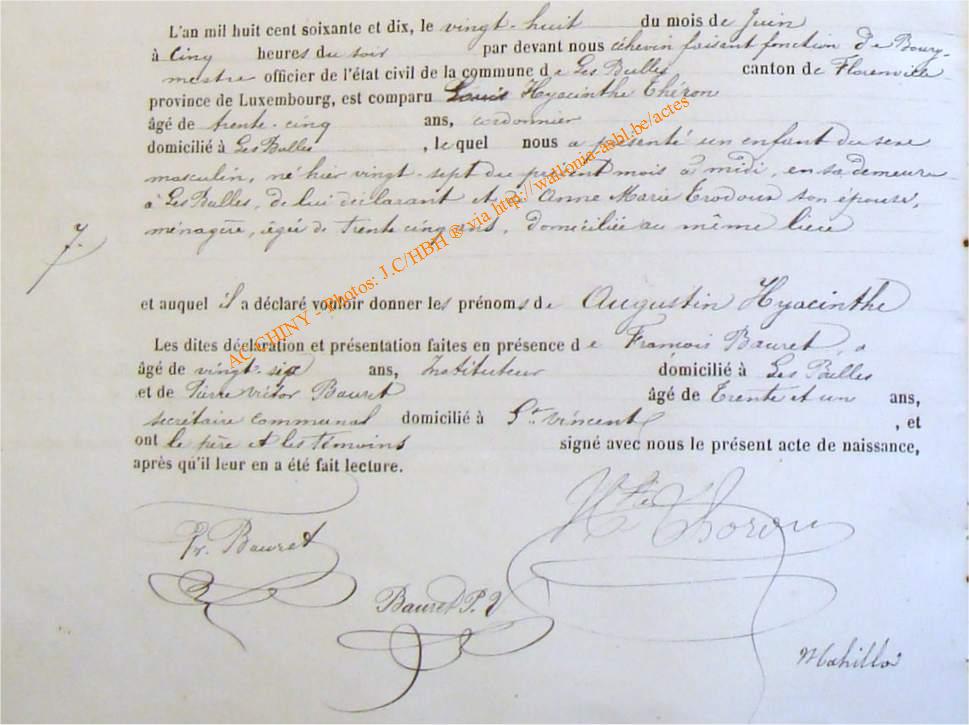 L'an mil huit cent soixante et dix, le vingt-huit du mois de Juin
à Cinq heures du soir par devant nous échevin faisant fonction de Bourg-
mestre officier de l'état civil de la commune de Les Bulles canton de Florenville
province de Luxembourg, est comparu Louis Hyacinthe Théron
âgé de trente-cinq ans, cordonnier
domicilié à Les Bulles , lequel nous a présenté un enfant du sexe
masculin, né hier vingt-sept du présent mois à midi, en sa demeure
à Les Bulles, de lui déclarant et de Anne Marie son épouse,
ménagère, âgée de trente cinq ans, domiciliée au même lieu
7.
et auquel il a déclaré vouloir donner les prénoms de Augustin Hyacinthe
Les dites déclaration et présentation faites en présence de François Bauret,
âgé de vingt-six ans, Instituteur domicilié à Les Bulles
et de Pierre Victor Bauret âgé de Trente et un ans,
secrétaire communal domicilié à St. Vincent , et
ont le père et les témoins signé avec nous le présent acte de naissance,
après qu'il leur en a été fait lecture.
Fr. Bauret
Bauret P. V
AC CHINY - Photos: J.C/HBH ® via http://wallonia-asbl.be/actes